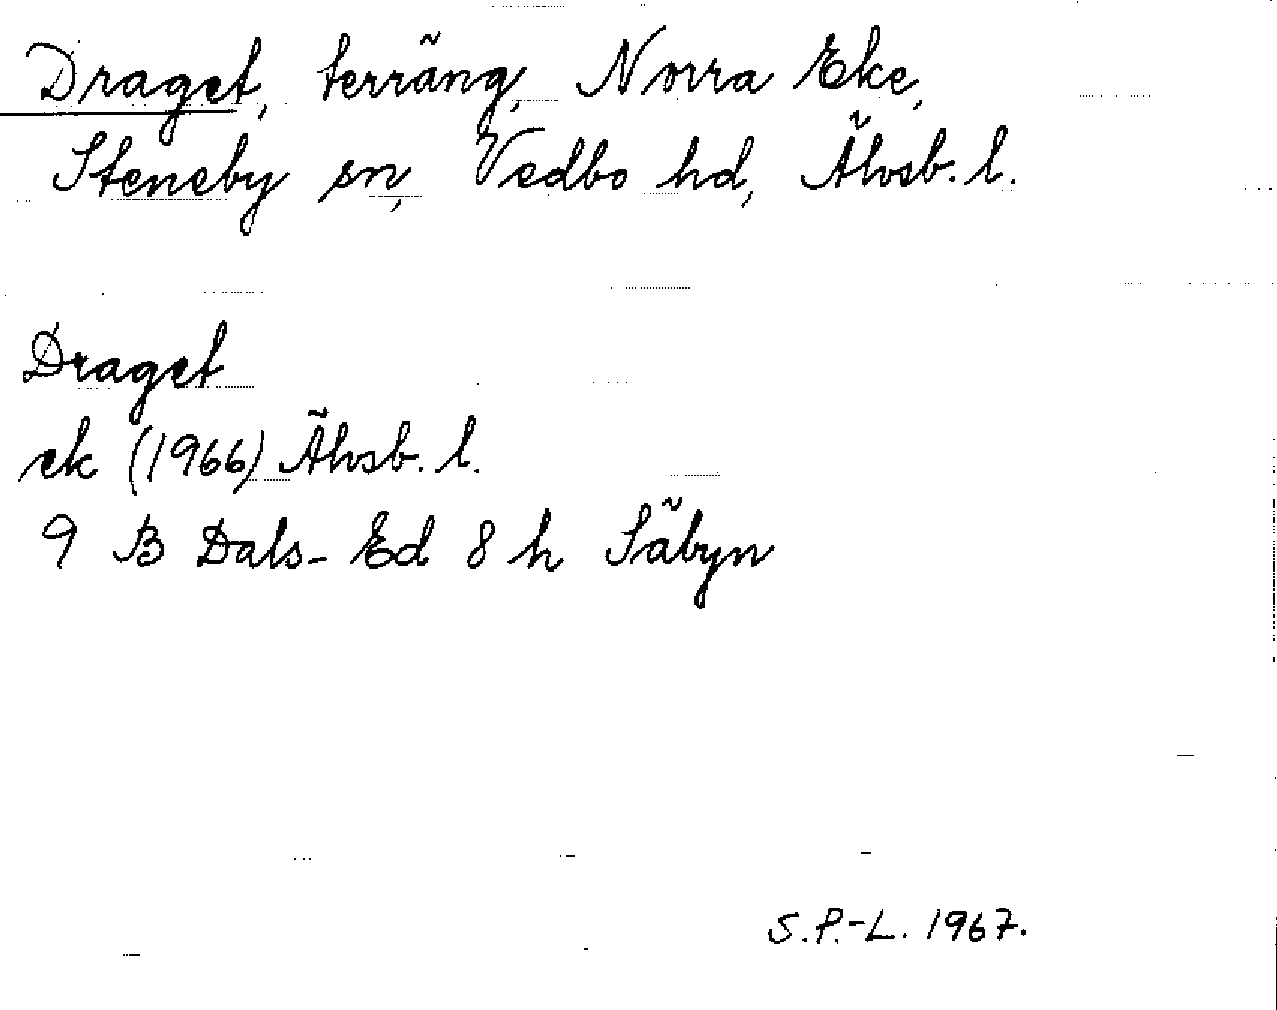 Draget, terräng, Norra Eke,
Steneby sn, Vedbo hd, Älvsb. l.
Draget
ek (1966) Älvsb. l.
9 B Dals-Ed 8 h Säbyn
S.P.-L. 1967.